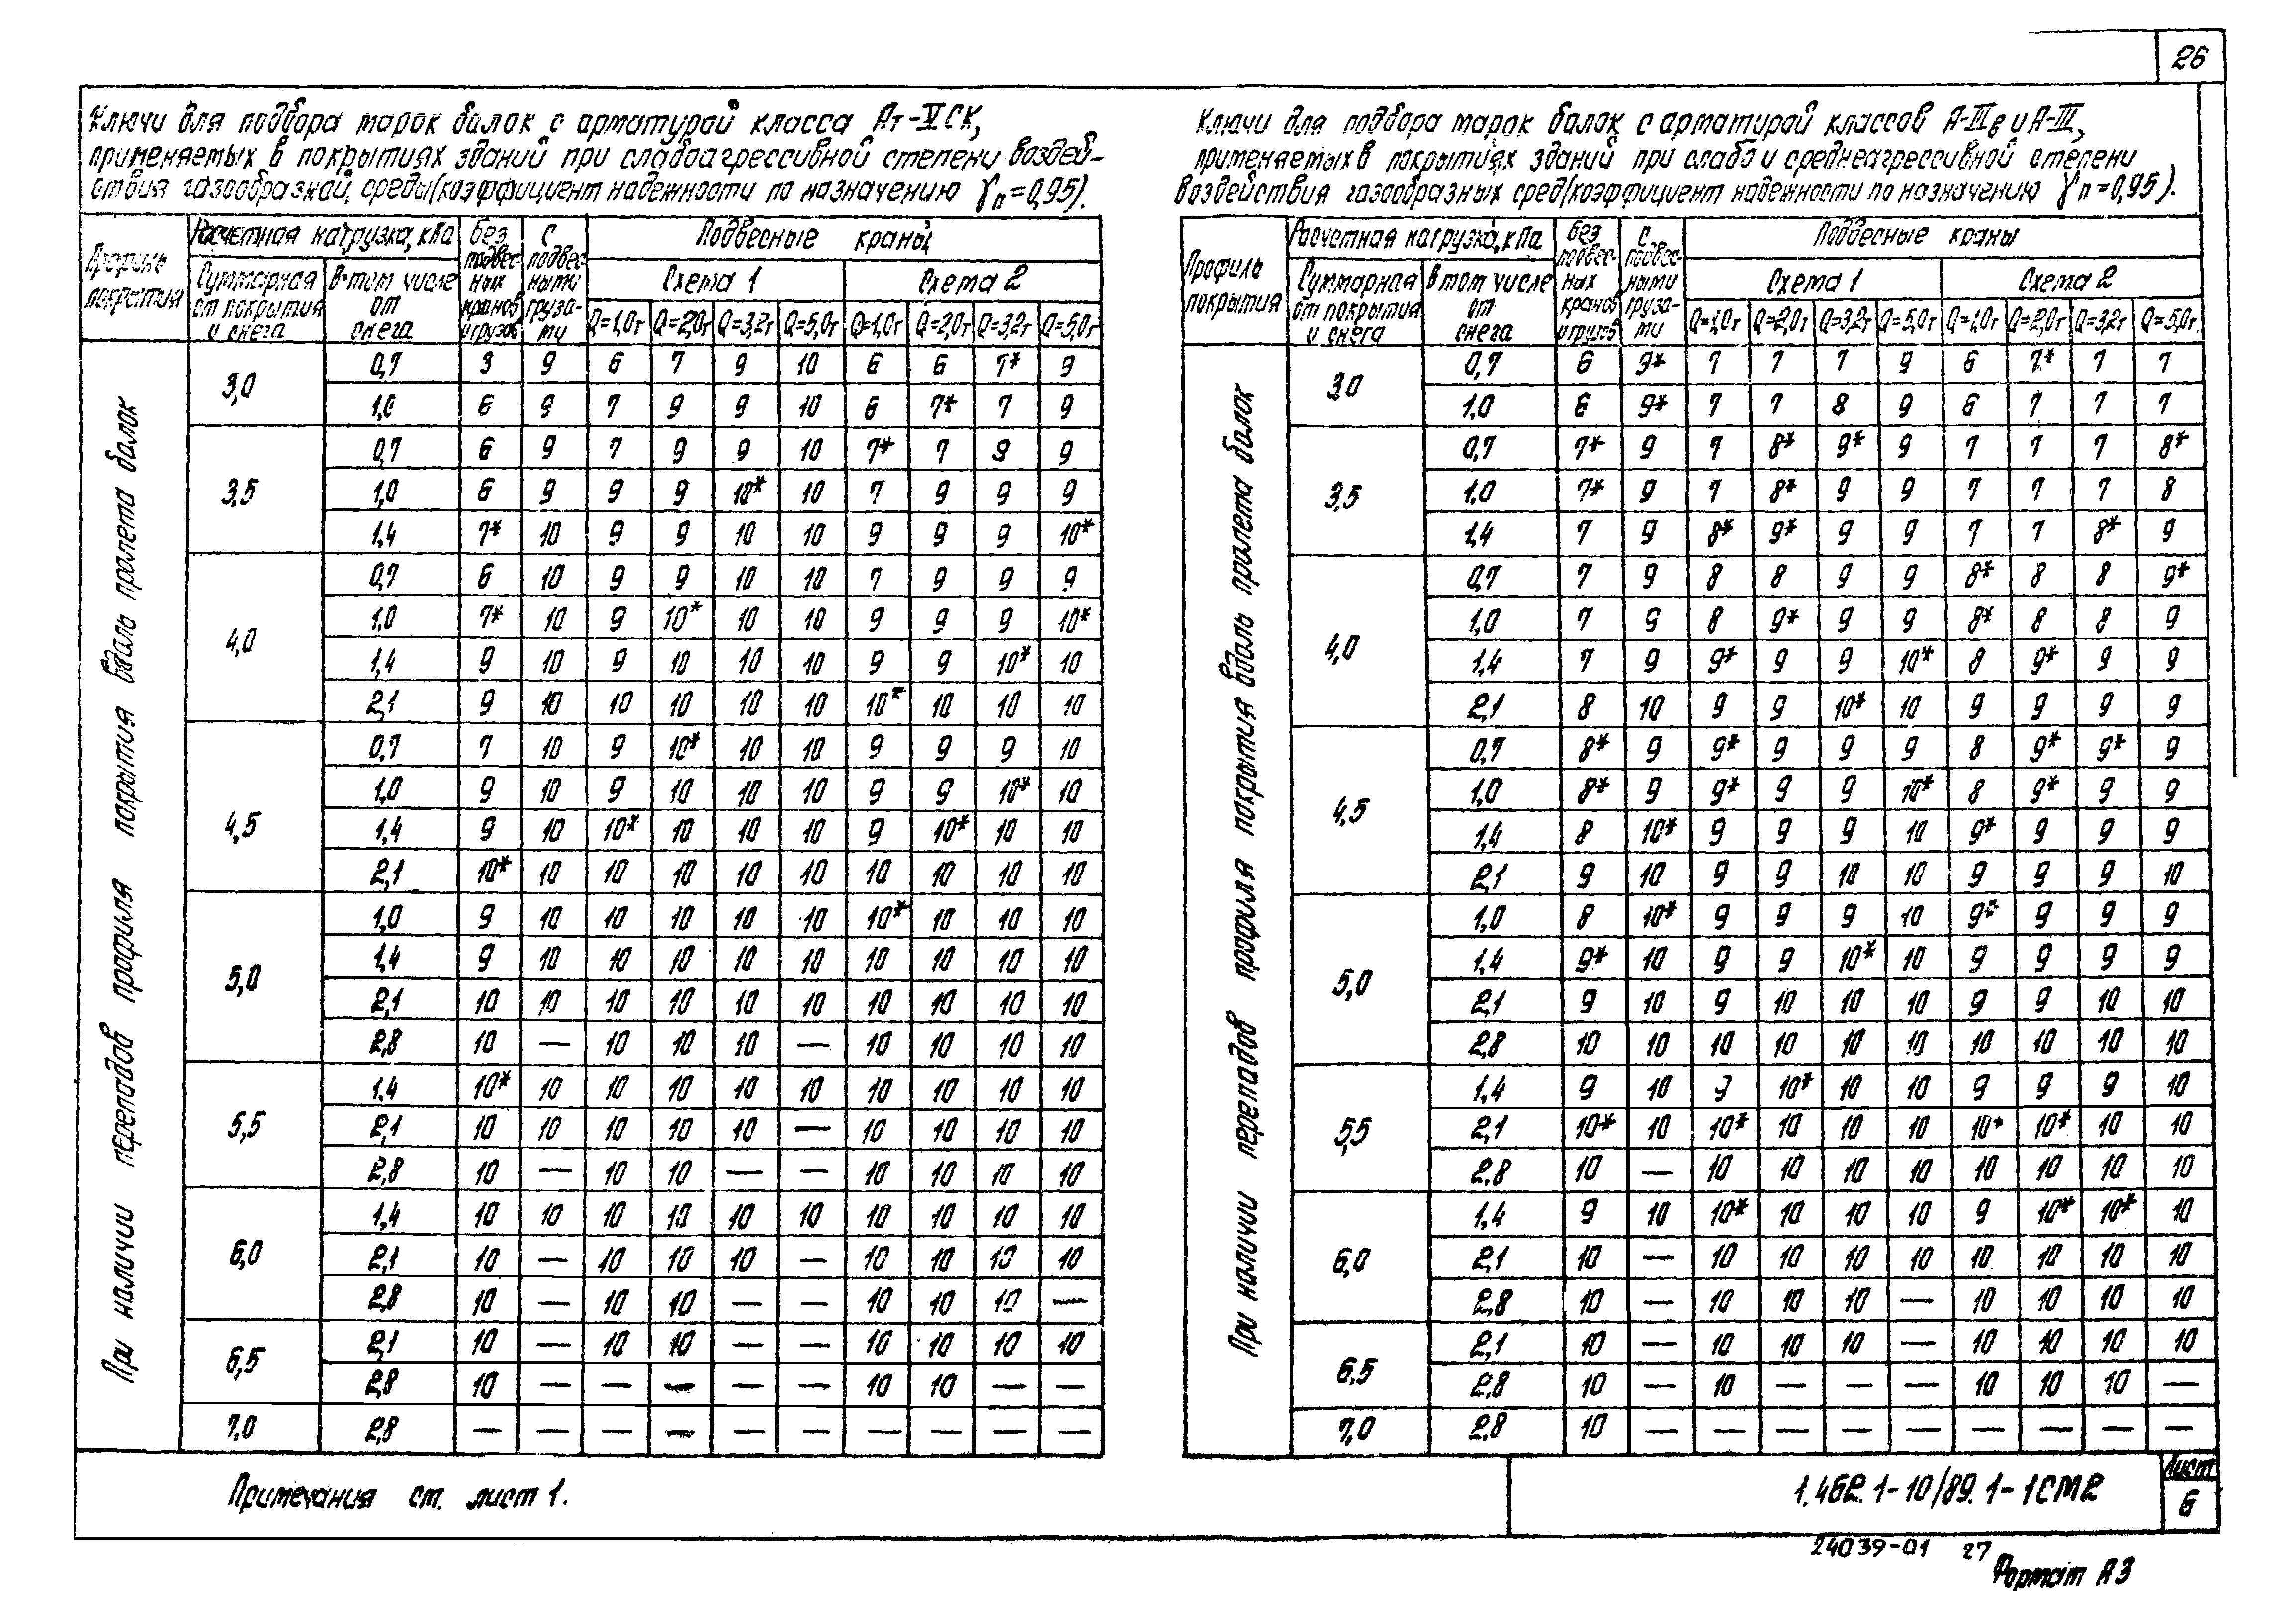 26
Ключи для подбора марок балок с арматурой класса Ат-VСК,
применяемых в покрытиях зданий при слабоагрессивной степени воздей-
ствия газообразной среды (коэффициент надежности по назначению γn=0,95).
Профиль покрытия | Расчетная нагрузка, кПа | Без подвесных кранов и грузов | С подвесными грузами | Подвесные краны
Суммарная от покрытия и снега | В том числе от снега | Схема 1 | Схема 2
Q=1,0т Q=2,0т Q=3,2т Q=5,0т Q=1,0т Q=2,0т Q=3,2т Q=5,0т
При наличии перепадов профиля покрытия вдоль пролета балок
3,0 0,7 9 6 7 9 10 6 6 7* 9
1,0 6 9 7 9 9 10 6 7* 7 9
3,5 0,7 6 9 7 9 9 10 7* 7 9 9
1,0 6 9 9 9 10* 10 7 9 9 9
1,4 7* 10 9 9 10 10 9 9 9 10*
4,0 0,7 6 10 9 9 10 10 7 9 9 9
1,0 7* 10 9 10* 10 10 9 9 9 10*
1,4 9 10 9 10 10 10 9 9 10* 10
2,1 9 10 10 10 10 10 10* 10 10 10
4,5 0,7 7 10 9 10* 10 10 9 9 9 10
1,0 9 10 9 10 10 10 9 9 10* 10
1,4 9 10 10* 10 10 10 9 10* 10 10
2,1 10* 10 10 10 10 10 10 10 10 10
5,0 1,0 9 10 10 10 10 10 10* 10 10 10
1,4 9 10 10 10 10 10 10 10 10 10
2,1 10 10 10 10 10 10 10 10 10 10
2,8 10 — 10 10 10 — 10 10 10 10
5,5 1,4 10* 10 10 10 10 10 10 10 10 10
2,1 10 10 10 10 10 — 10 10 10 10
2,8 10 — 10 10 — — 10 10 10 10
6,0 1,4 10 10 10 10 10 10 10 10 10 10
2,1 10 — 10 10 10 — 10 10 10 10
2,8 10 — 10 10 — — 10 10 10 —
6,5 2,1 10 — 10 10 — — 10 10 10 10
2,8 10 — — — — — 10 10 — —
7,0 2,8 — — — — — — — — — —
Ключи для подбора марок балок с арматурой классов А-IIIв и А-III,
применяемых в покрытиях зданий при слабо и среднеагрессивной степени
воздействия газообразных сред (коэффициент надежности по назначению γn=0,95).
Профиль покрытия | Расчетная нагрузка, кПа | Без подвесных кранов и грузов | С подвесными грузами | Подвесные краны
Суммарная от покрытия и снега | В том числе от снега | Схема 1 | Схема 2
Q=1,0т Q=2,0т Q=3,2т Q=5,0т Q=1,0т Q=2,0т Q=3,2т Q=5,0т
При наличии перепадов профиля покрытия вдоль пролета балок
3,0 0,7 6 9* 7 7 7 9 6 7* 7 7
1,0 6 9* 7 7 8 9 6 7 7 7
3,5 0,7 7* 9 7 8* 9* 9 7 7 7 8*
1,0 7* 9 7 8* 9 9 7 7 7 8
1,4 7 9 8* 9* 9 9 7 7 8* 9
4,0 0,7 7 9 8 8 9 9 8* 8 8 9*
1,0 7 9 8 9* 9 9 8* 8 8 9
1,4 7 9 9* 9 9 10* 8 9* 9 9
2,1 8 10 9 9 10* 10 9 9 9 9
4,5 0,7 8* 9 9* 9 9 9 8 9* 9* 9
1,0 8* 9 9* 9 9 10* 8 9* 9 9
1,4 8 10* 9 9 9 10 9* 9 9 9
2,1 9 10 9 9 10 10 9 9 9 10
5,0 1,0 8 10* 9 9 9 10 9* 9 9 9
1,4 9* 10 9 9 10* 10 9 9 9 9
2,1 9 10 9 10 10 10 9 9 10 10
2,8 10 10 10 10 10 10 10 10 10 10
5,5 1,4 9 10 9 10* 10 10 9 9 9 10
2,1 10* 10 10* 10 10 10 10* 10* 10 10
2,8 10 — 10 10 10 10 10 10 10 10
6,0 1,4 9 10 10* 10 10 10 9 10* 10* 10
2,1 10 — 10 10 10 10 10 10 10 10
2,8 10 — 10 10 10 — 10 10 10 10
6,5 2,1 10 — 10 10 10 — 10 10 10 10
2,8 10 — 10 — — — 10 10 10 —
7,0 2,8 10 — — — — — — — — —
Примечания см. лист 1.
1.462.1-10/89.1-1СМ2
Лист
6
24039-01 27
Формат А3